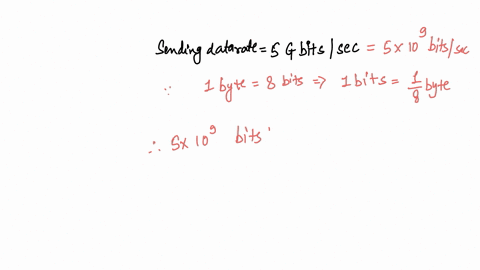 Sending datarate = 5 G bits / sec = 5 × 10⁹ bits/sec
∵ 1 byte = 8 bits ⇒ 1 bits = 1/8 byte
∴ 5× 10⁹ bits